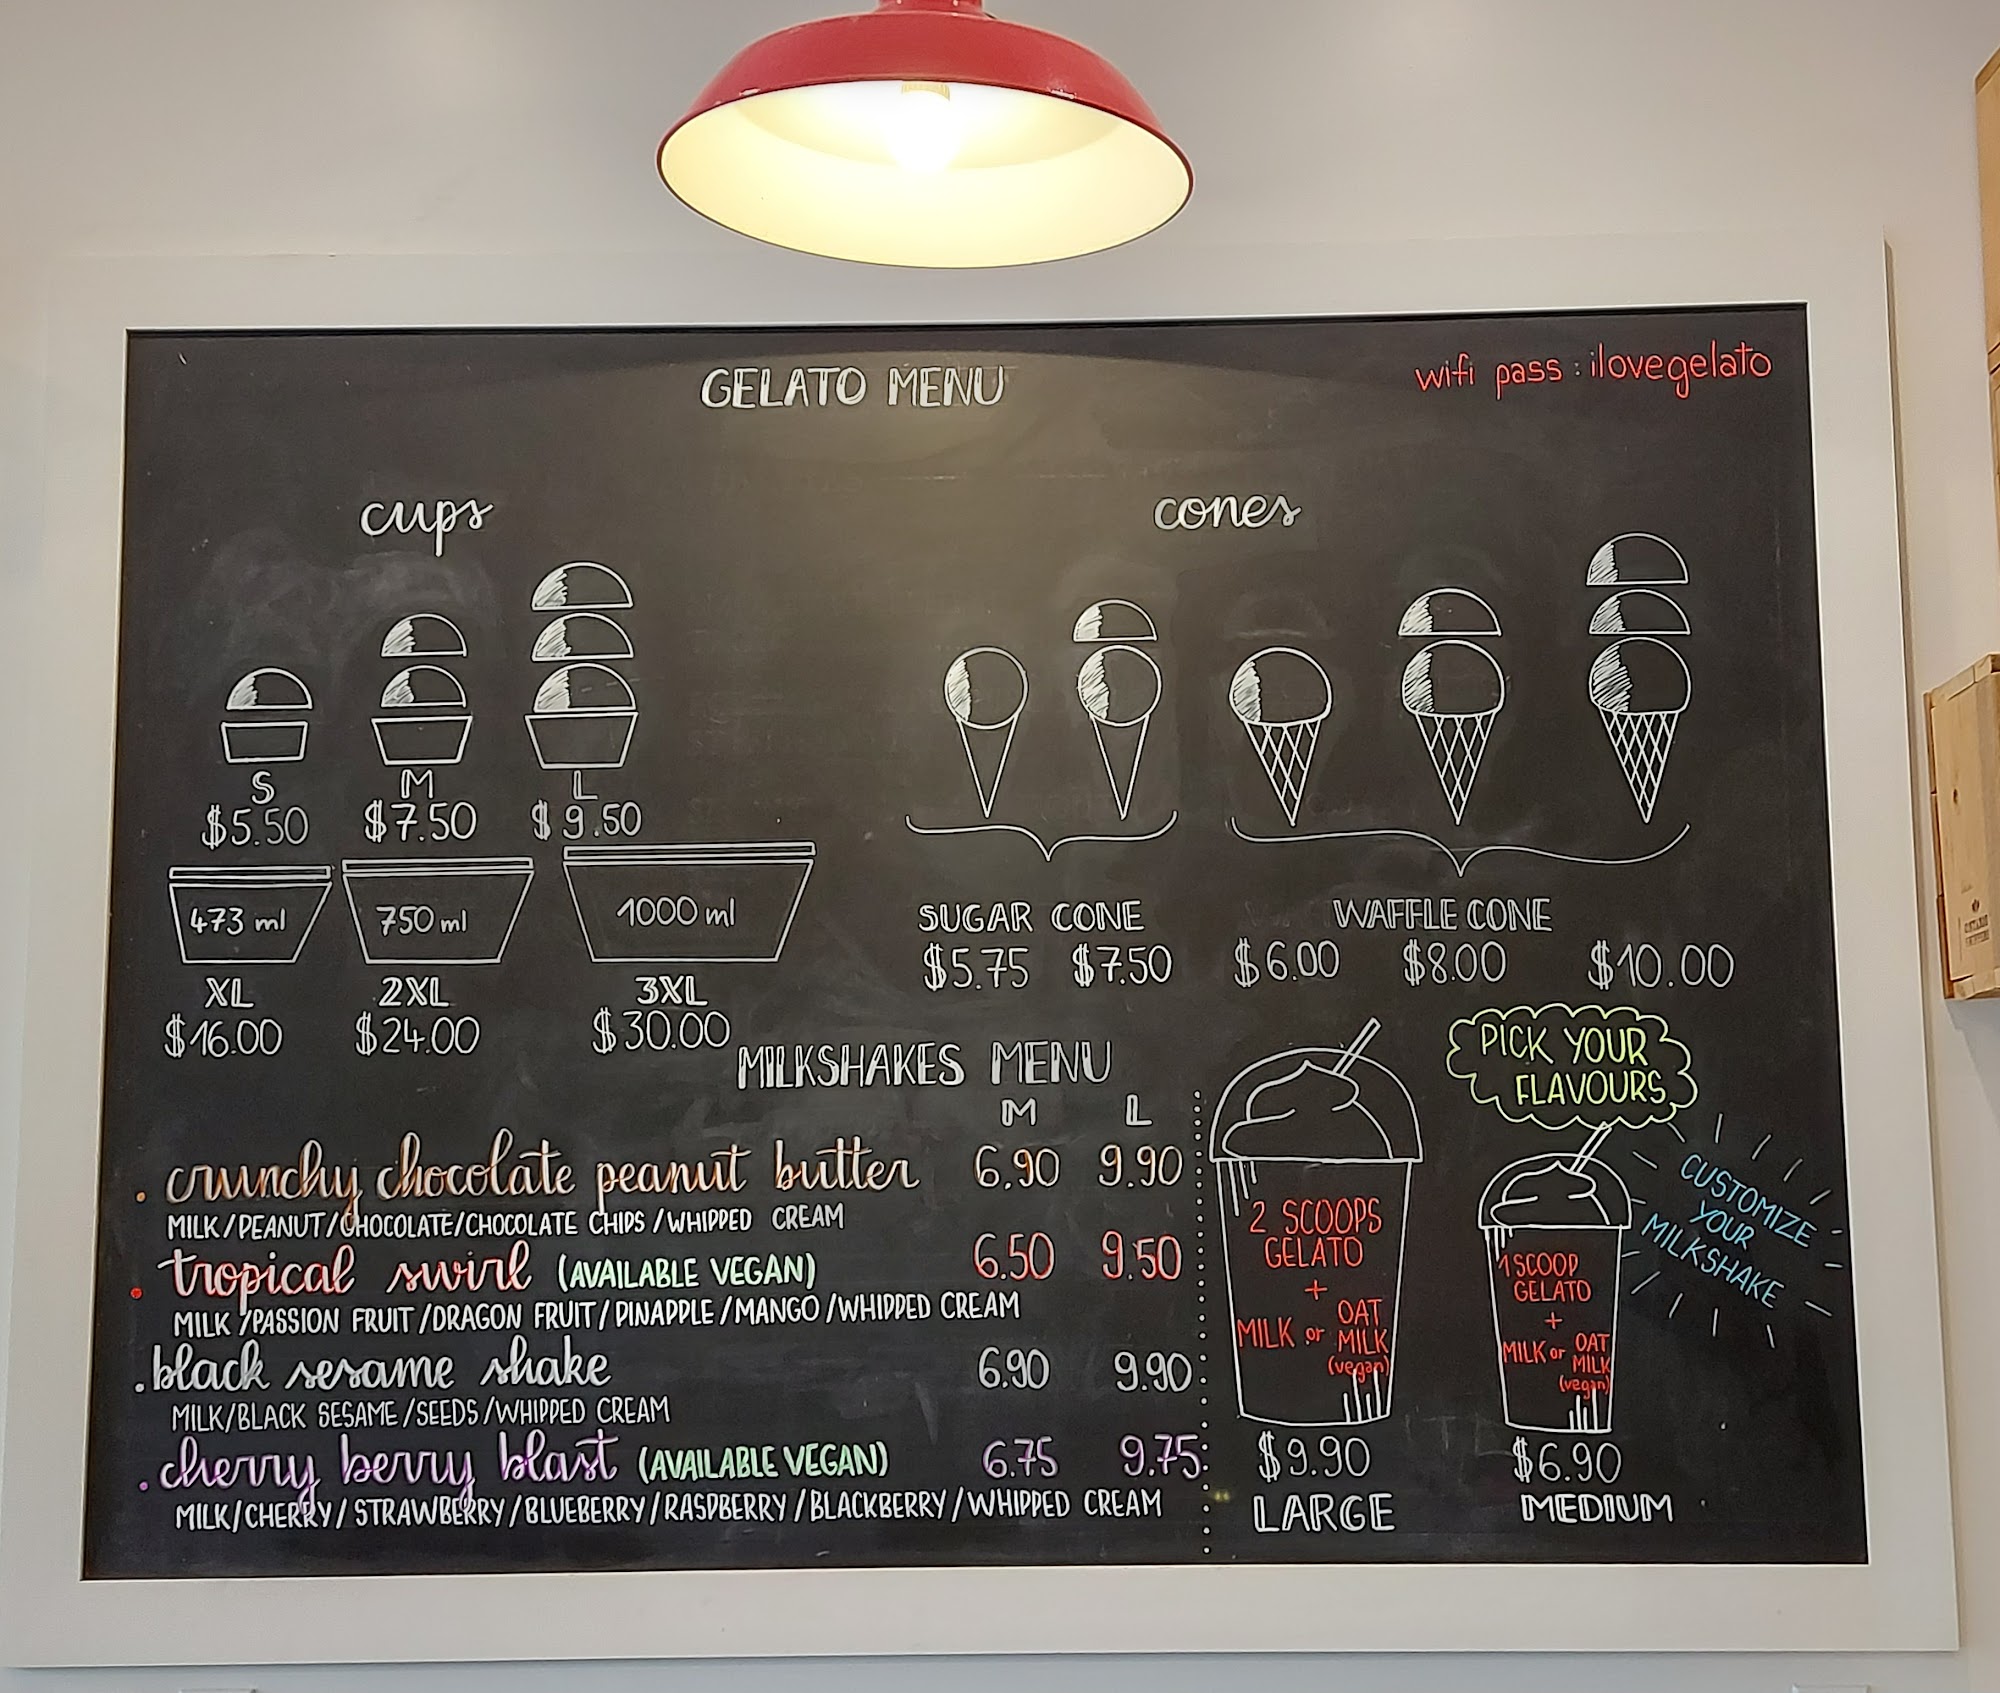 GELATO MENU
wifi pass : ilovegelato
cups
S
M
L
$5.50
$7.50
$9.50
473 ml
750 ml
1000 ml
XL
2XL
3XL
$16.00
$24.00
$30.00
cones
SUGAR CONE
$5.75 $7.50
WAFFLE CONE
$6.00 $8.00 $10.00
MILKSHAKES MENU
M L
. crunchy chocolate peanut butter 6.90 9.90
MILK/PEANUT/CHOCOLATE/CHOCOLATE CHIPS/WHIPPED CREAM
. tropical swirl (AVAILABLE VEGAN) 6.50 9.50
MILK/PASSION FRUIT/DRAGON FRUIT/PINAPPLE/MANGO/WHIPPED CREAM
. black sesame shake 6.90 9.90
MILK/BLACK SESAME/SEEDS/WHIPPED CREAM
. cherry berry blast (AVAILABLE VEGAN) 6.75 9.75
MILK/CHERRY/STRAWBERRY/BLUEBERRY/RASPBERRY/BLACKBERRY/WHIPPED CREAM
PICK YOUR
FLAVOURS
CUSTOMIZE
YOUR
MILKSHAKE
2 SCOOPS
GELATO
+
MILK or OAT
MILK
(vegan)
$9.90
LARGE
1 SCOOP
GELATO
+
MILK or OAT
MILK
(vegan)
$6.90
MEDIUM